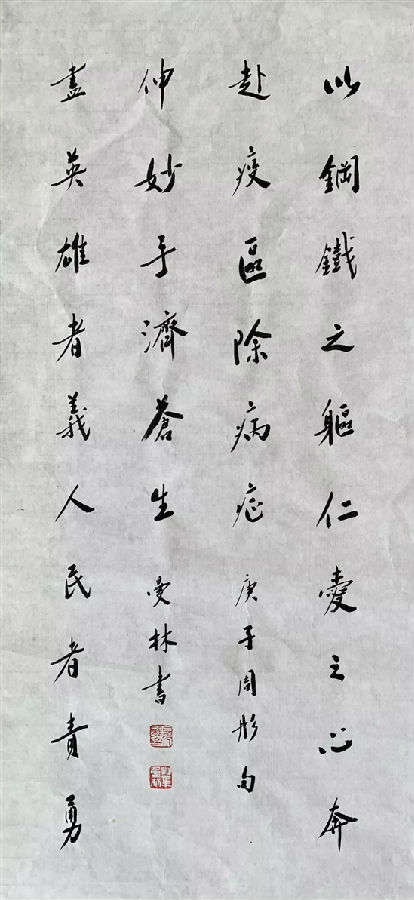 以鋼鐵之軀仁愛之心奔
赴疫區除病症 庚子周彤句
盡英雄者義人民者責勇
伸妙手濟蒼生 曼林書